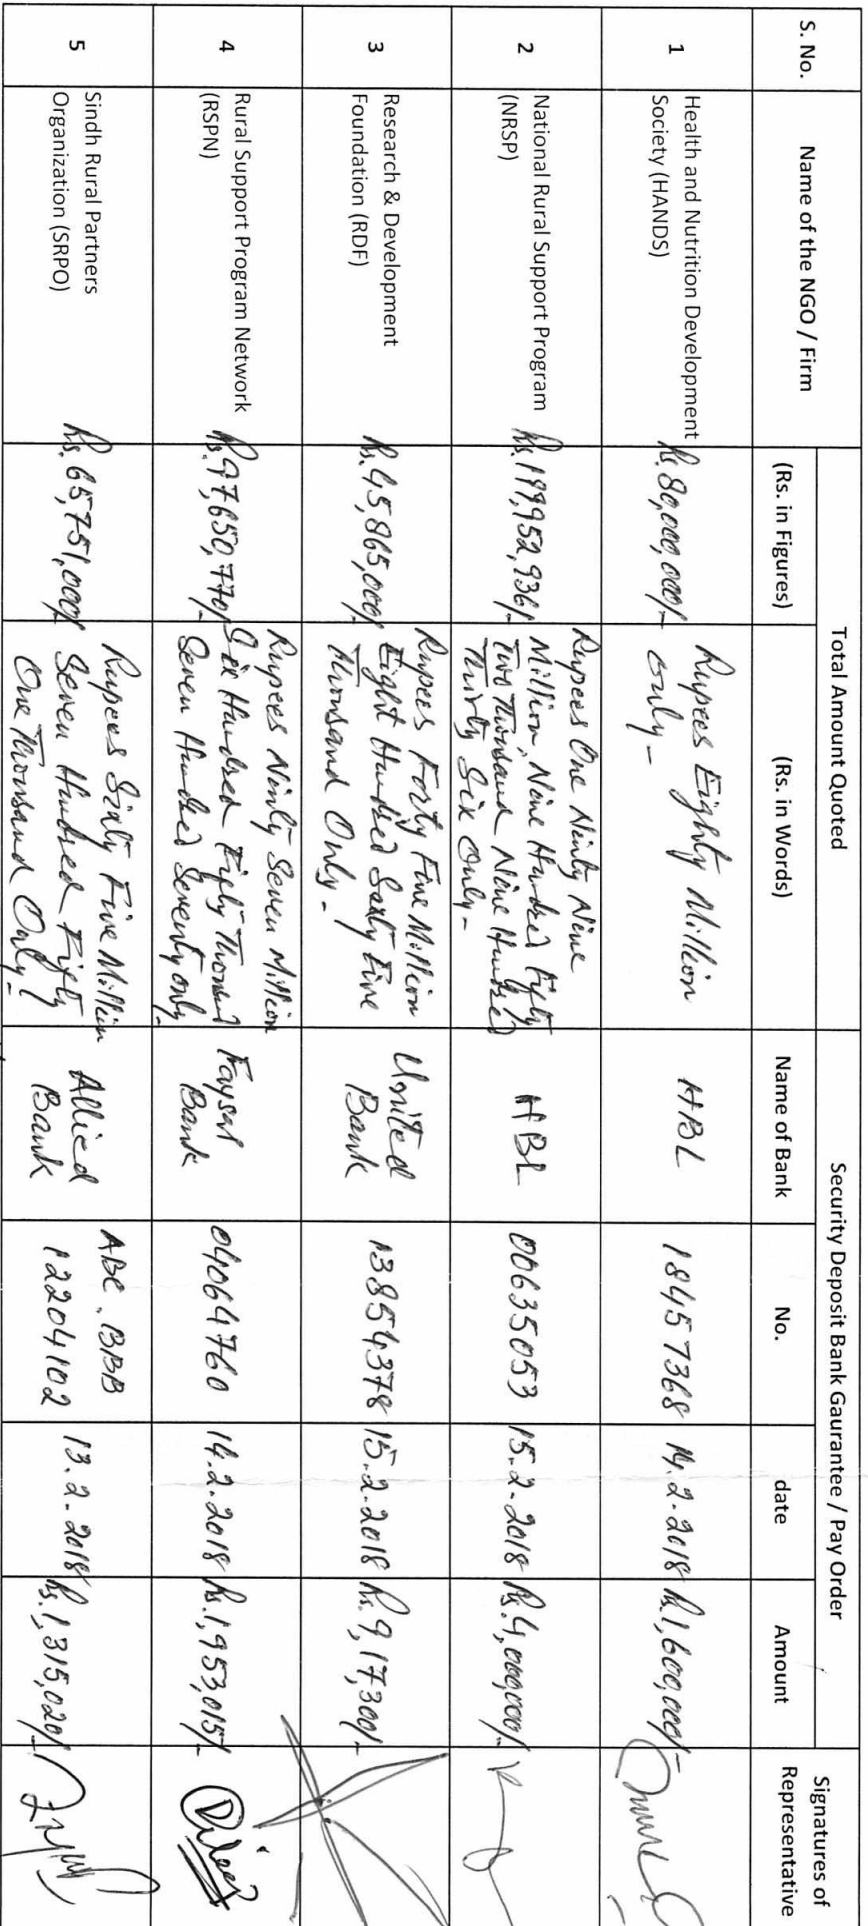 S. No.
Name of the NGO / Firm
Total Amount Quoted
Security Deposit Bank Gaurantee / Pay Order
Signatures of
Representative
(Rs. in Figures)
(Rs. in Words)
Name of Bank
No.
date
Amount
1
Health and Nutrition Development
Society (HANDS)
Rs. 80,000,000/-
Rupees Eighty Million
only -
HBL
18457368
14.2.2018
Rs. 1,600,000/-
2
National Rural Support Program
(NRSP)
Rs. 199,952,936/-
Rupees One Ninty Nine
Million, Nine Hundred Fifty
Two Thousand Nine Hundred
Thirty Six Only -
HBL
00635053
15.2.2018
Rs. 4,000,000/-
3
Research & Development
Foundation (RDF)
Rs. 45,865,000/-
Rupees Forty Five Million
Eight Hundred Sixty Five
Thousand Only -
United
Bank
13854378
15.2.2018
Rs. 9,17,300/-
4
Rural Support Program Network
(RSPN)
Rs. 97,650,770/-
Rupees Ninty Seven Million
Six Hundred Fifty Thousand
Seven Hundred Seventy only -
Faysal
Bank
04064760
14.2.2018
Rs. 1,953,015/-
5
Sindh Rural Partners
Organization (SRPO)
Rs. 65,751,000/-
Rupees Sixty Five Million
Seven Hundred Fifty
One Thousand Only -
Allied
Bank
ABC. BBB
12204102
13.2.2018
Rs. 1,315,020/-